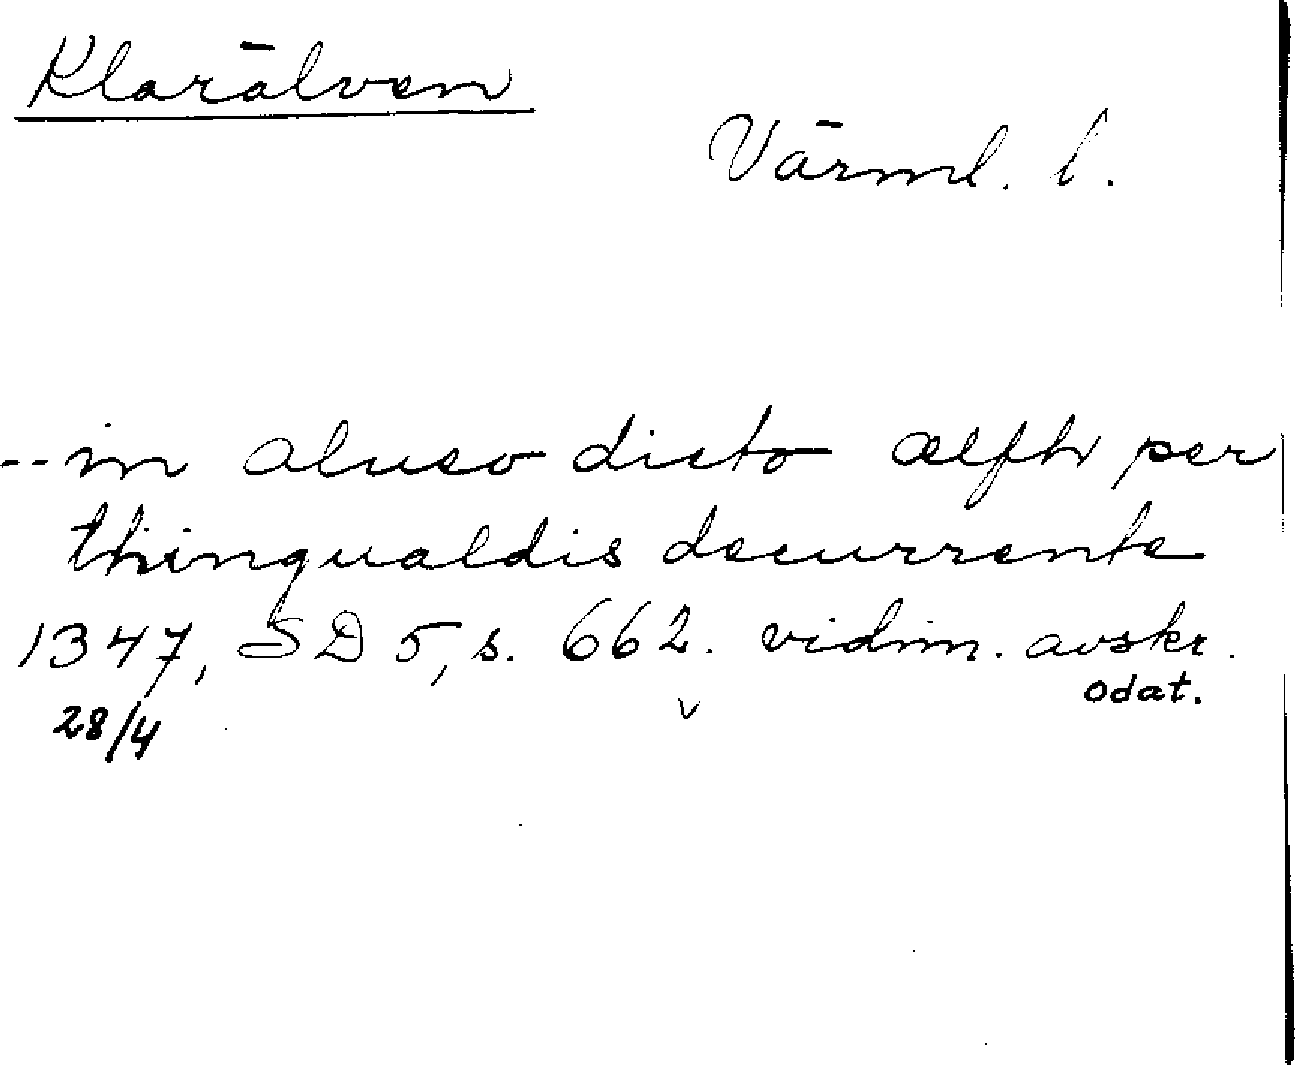 Klarälven
Värml. l.
-- in alueo dicto ælfh per
thingualdis decurrente
1347, SD 5, s. 662. vidim. avskr.
odat.
28/4
v